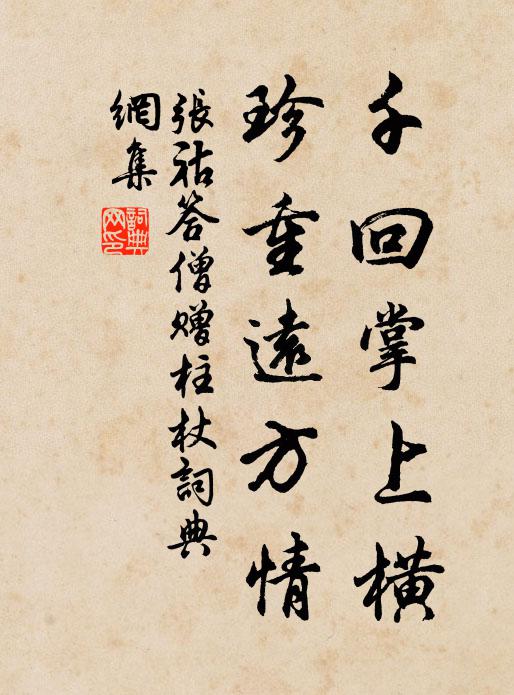 千回掌上横
珍重遠方情
張祜答僧贈柱杖詞典
網集
詞典網印